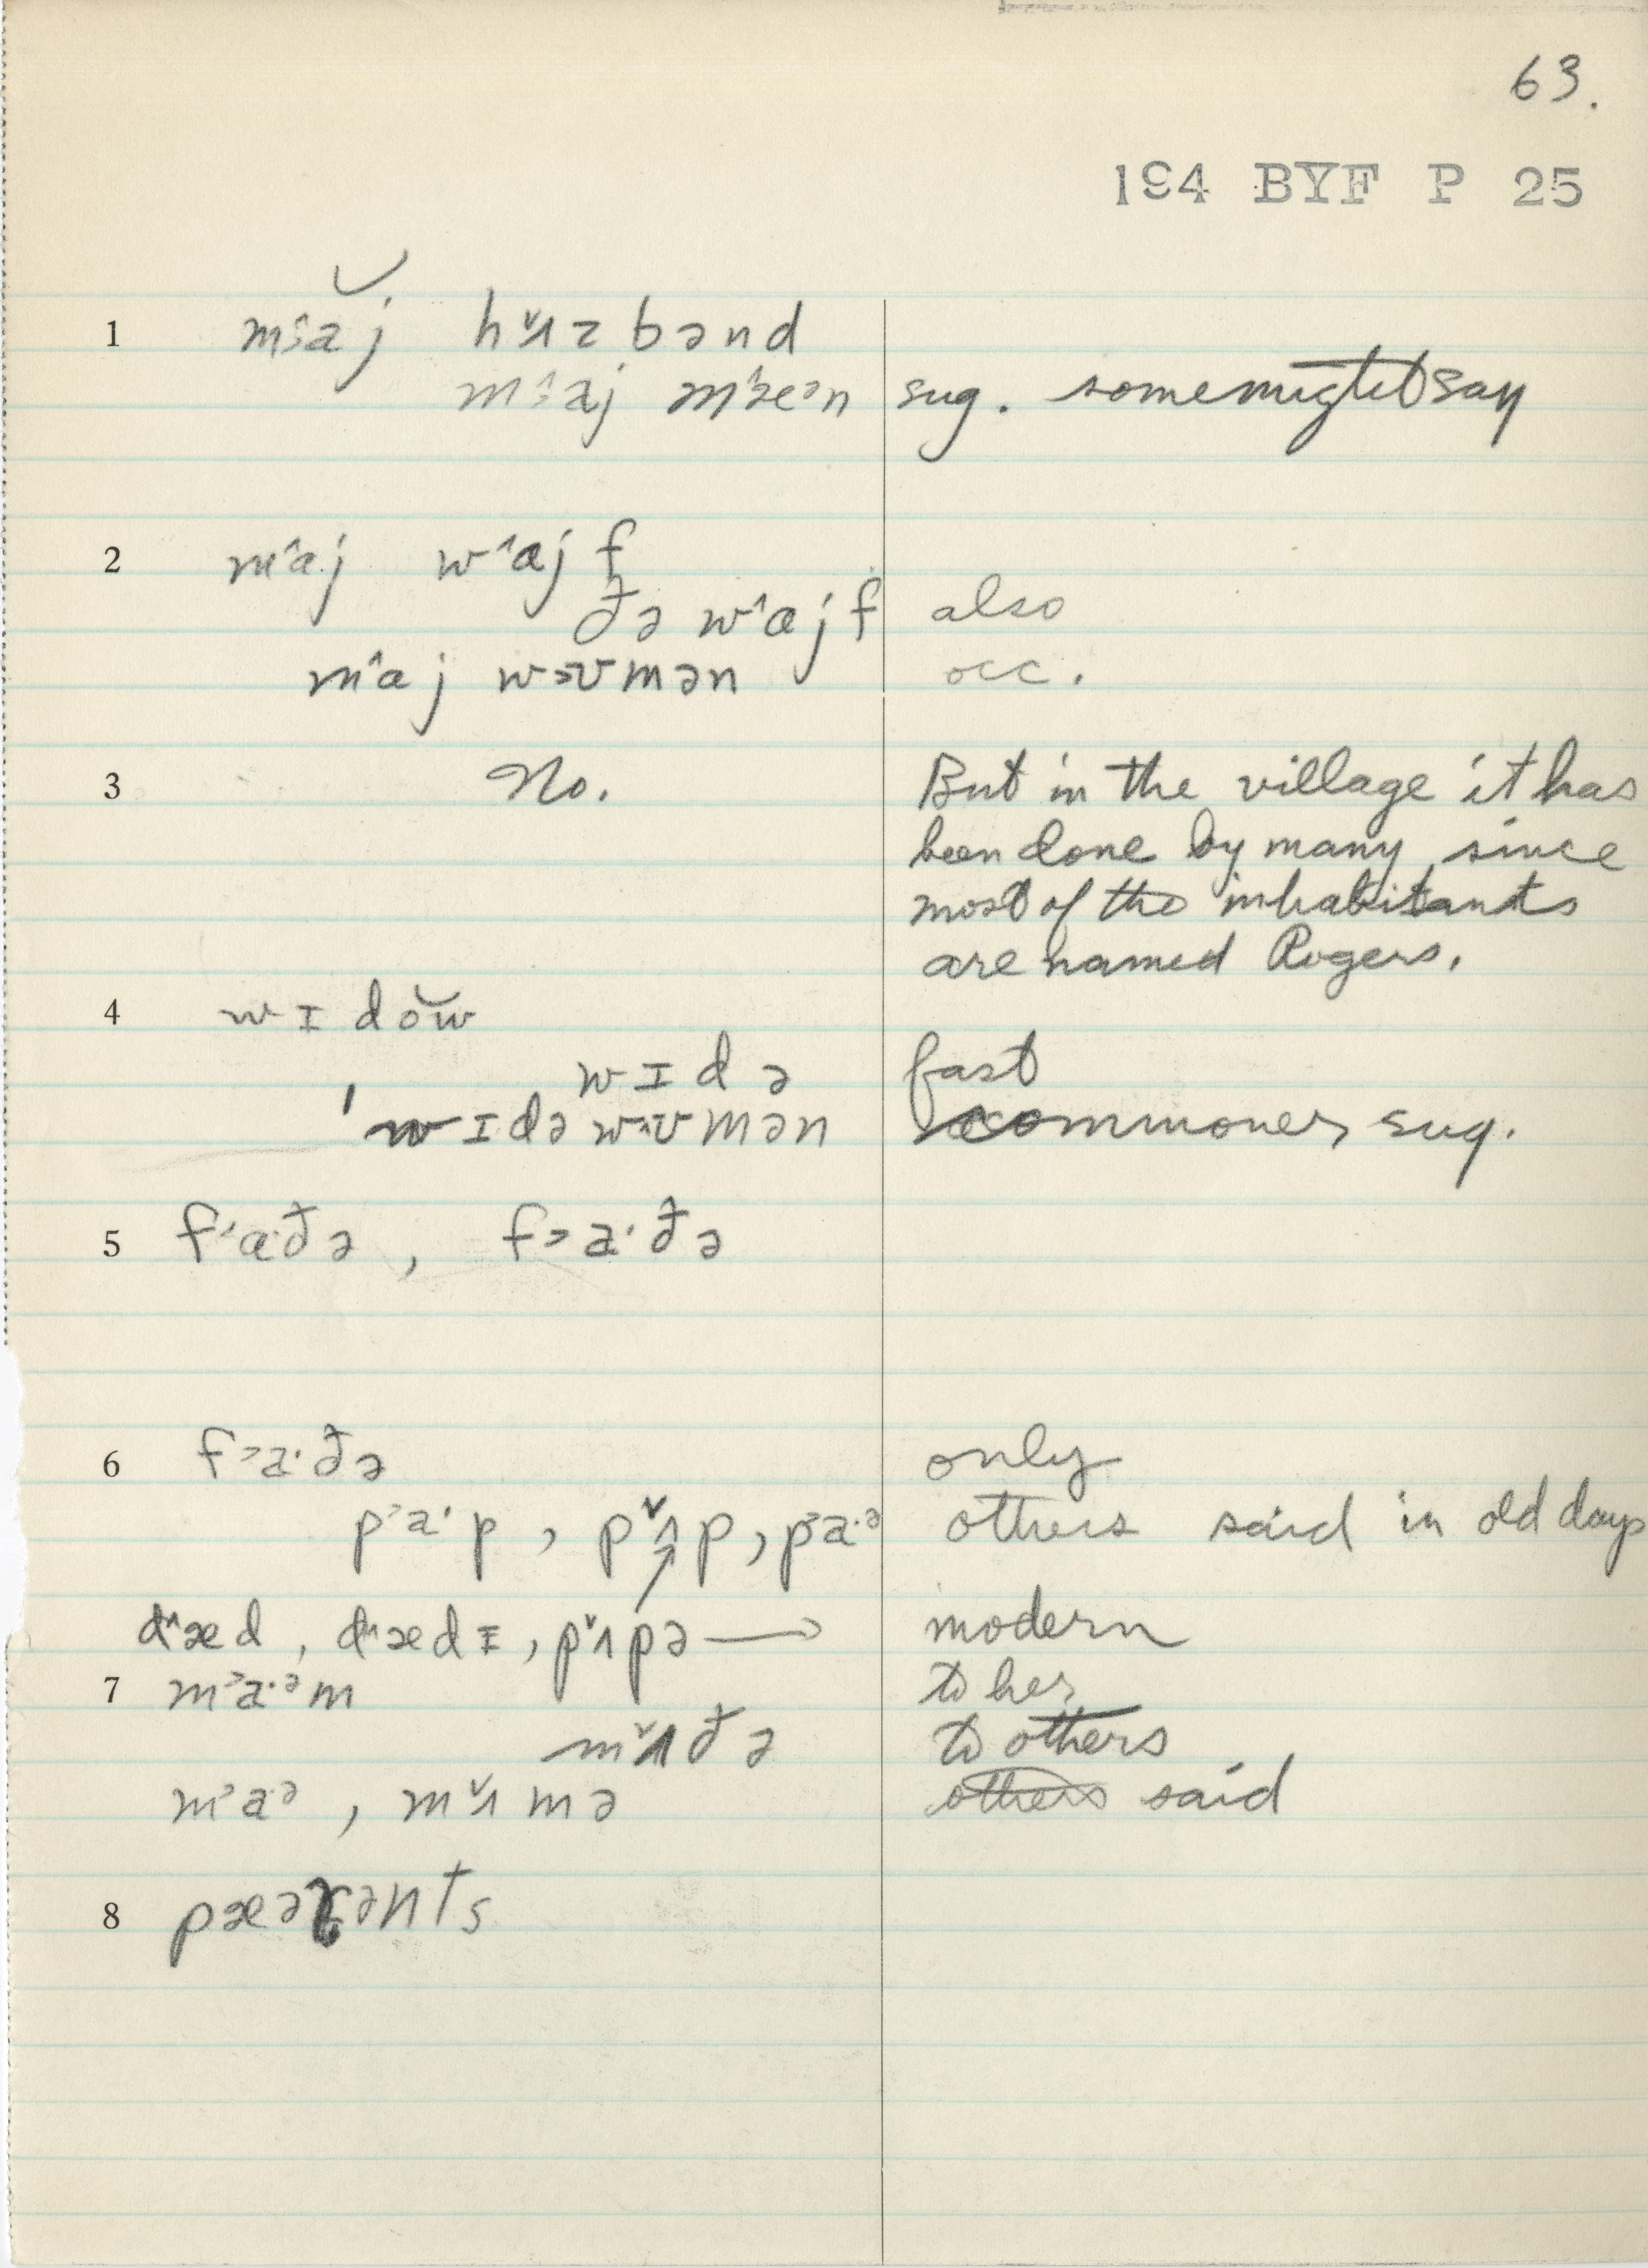 63.
194 BYF P 25
1 maj hʌzbənd
maj mæᵊn sug. some might say
2 maj wajf
ðə wajf also
maj wʊmən occ.
3 No. But in the village it has
been done by many, since
most of the inhabitants
are named Rogers.
4 wɪdow
wɪdə fast
'wɪdə wʊmən commoner sug.
5 fa·ðə, fa·ðə
6 fa·ðə only
pa·p, pʌp, pa·ᵊ others said in old days
dæd, dædɪ, pʌpə → modern
7 ma·ᵊm to her
mʌðə to others
ma·ᵊ, mʌmə others said
8 pæərənts